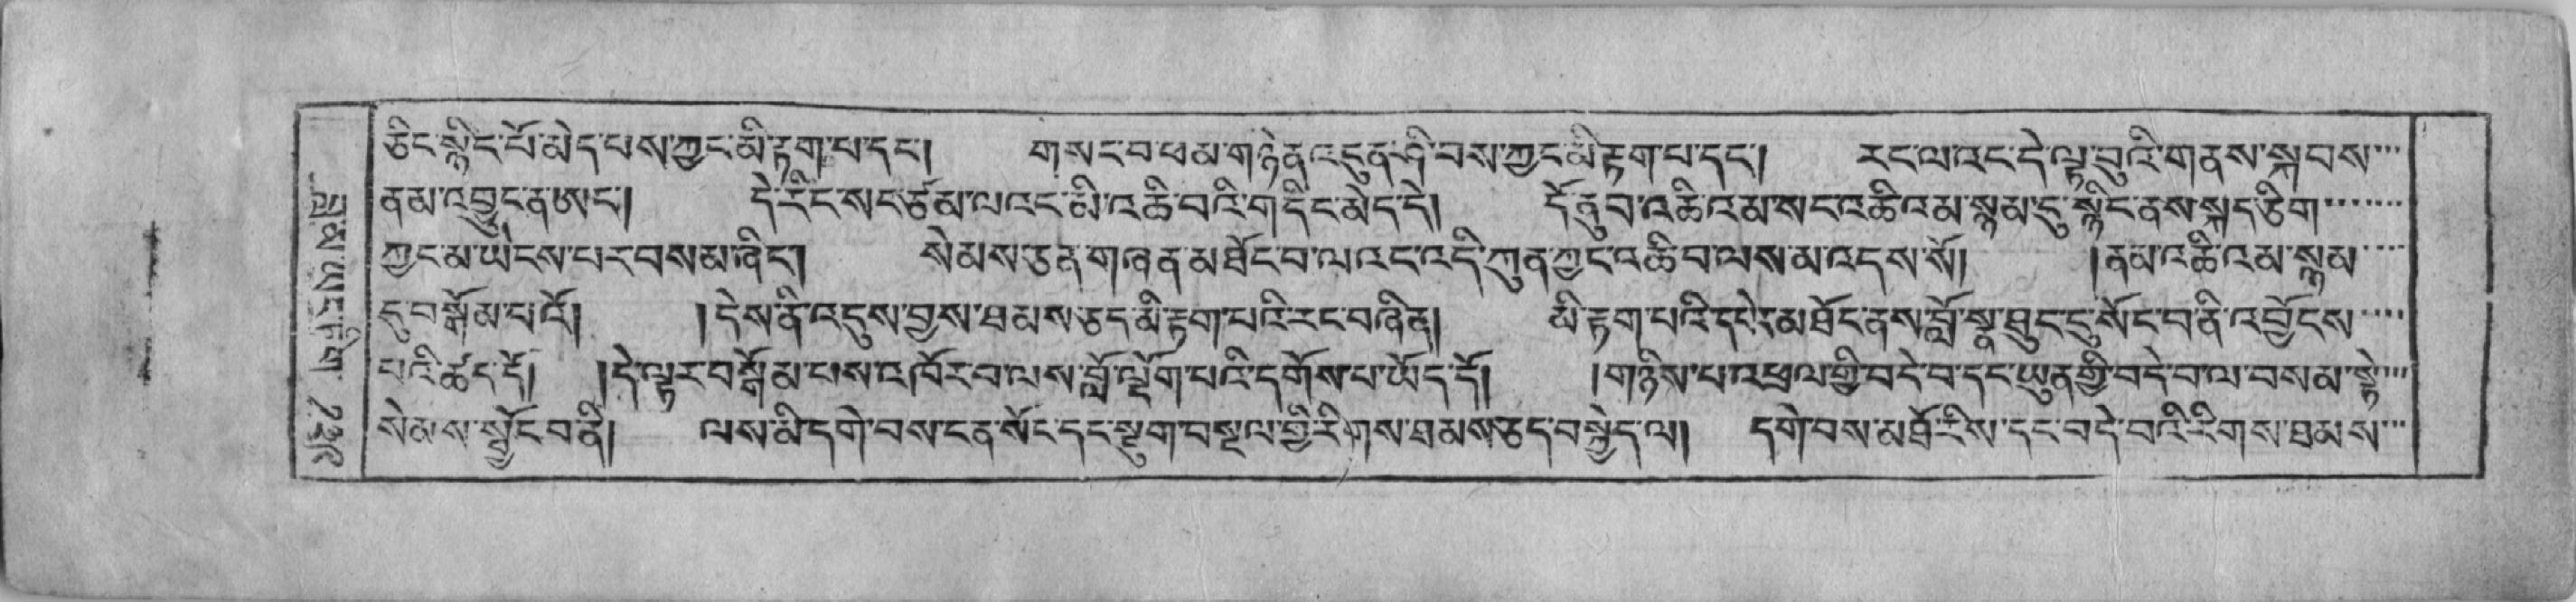 ཅིང་སྙིང་པོ་མེད་པས་ཀྱང་མི་རྟག་པ་དང༌། གསང་བ་ཕམ་གཉེན་འདུན་ཤི་བས་ཀྱང་མི་རྟག་པ་དང༌། རང་ལ་འང་དེ་ལྟ་བུའི་གནས་སྐབས
ནམ་འབྱུང་ན་ཨང༌། དེ་རིང་སང་ཙམ་ལ་འང་མི་འཆི་བའི་གདིང་མེད་དེ། དོ་ནུབ་འཆི་འམ་སང་འཆི་འམ་སྙམ་དུ་སྙིང་ནས་སྐད་ཅིག
ཀྱང་མ་ཡེངས་པར་བསམ་ཞིང༌། སེམས་ཅན་གཞན་མཐོང་བ་ལ་འང་འདི་ཀུན་ཀྱང་འཆི་བ་ལས་མ་འདས་སོ། །ནམ་འཆི་འམ་སྙམ
དུ་བསྒོམ་པའོ། །དེས་ནི་འདུས་བྱས་ཐམས་ཅད་མི་རྟག་པའི་རང་བཞིན། མི་རྟག་པའི་ངང་དེར་མཐོང་ནས་བློ་སྣ་ཐུང་དུ་སོང་བ་ནི་འབྱོངས
པའི་ཚད་དོ། །དེ་ལྟར་བསྒོམ་པས་འཁོར་བ་ལས་བློ་ལྡོག་པའི་དགོས་པ་ཡོད་དོ། །གཉིས་པ་འཕྲལ་གྱི་བདེ་བ་དང་ཡུན་གྱི་བདེ་བ་ལ་བསམ་སྟེ
སེམས་སྦྱོང་བ་ནི། ལས་མི་དགེ་བས་ངན་སོང་དང་སྡུག་བསྔལ་གྱི་རིགས་ཐམས་ཅད་བསྐྱེད་ལ། དགེ་བས་མཐོ་རིས་དང་བདེ་བའི་རིགས་ཐམས